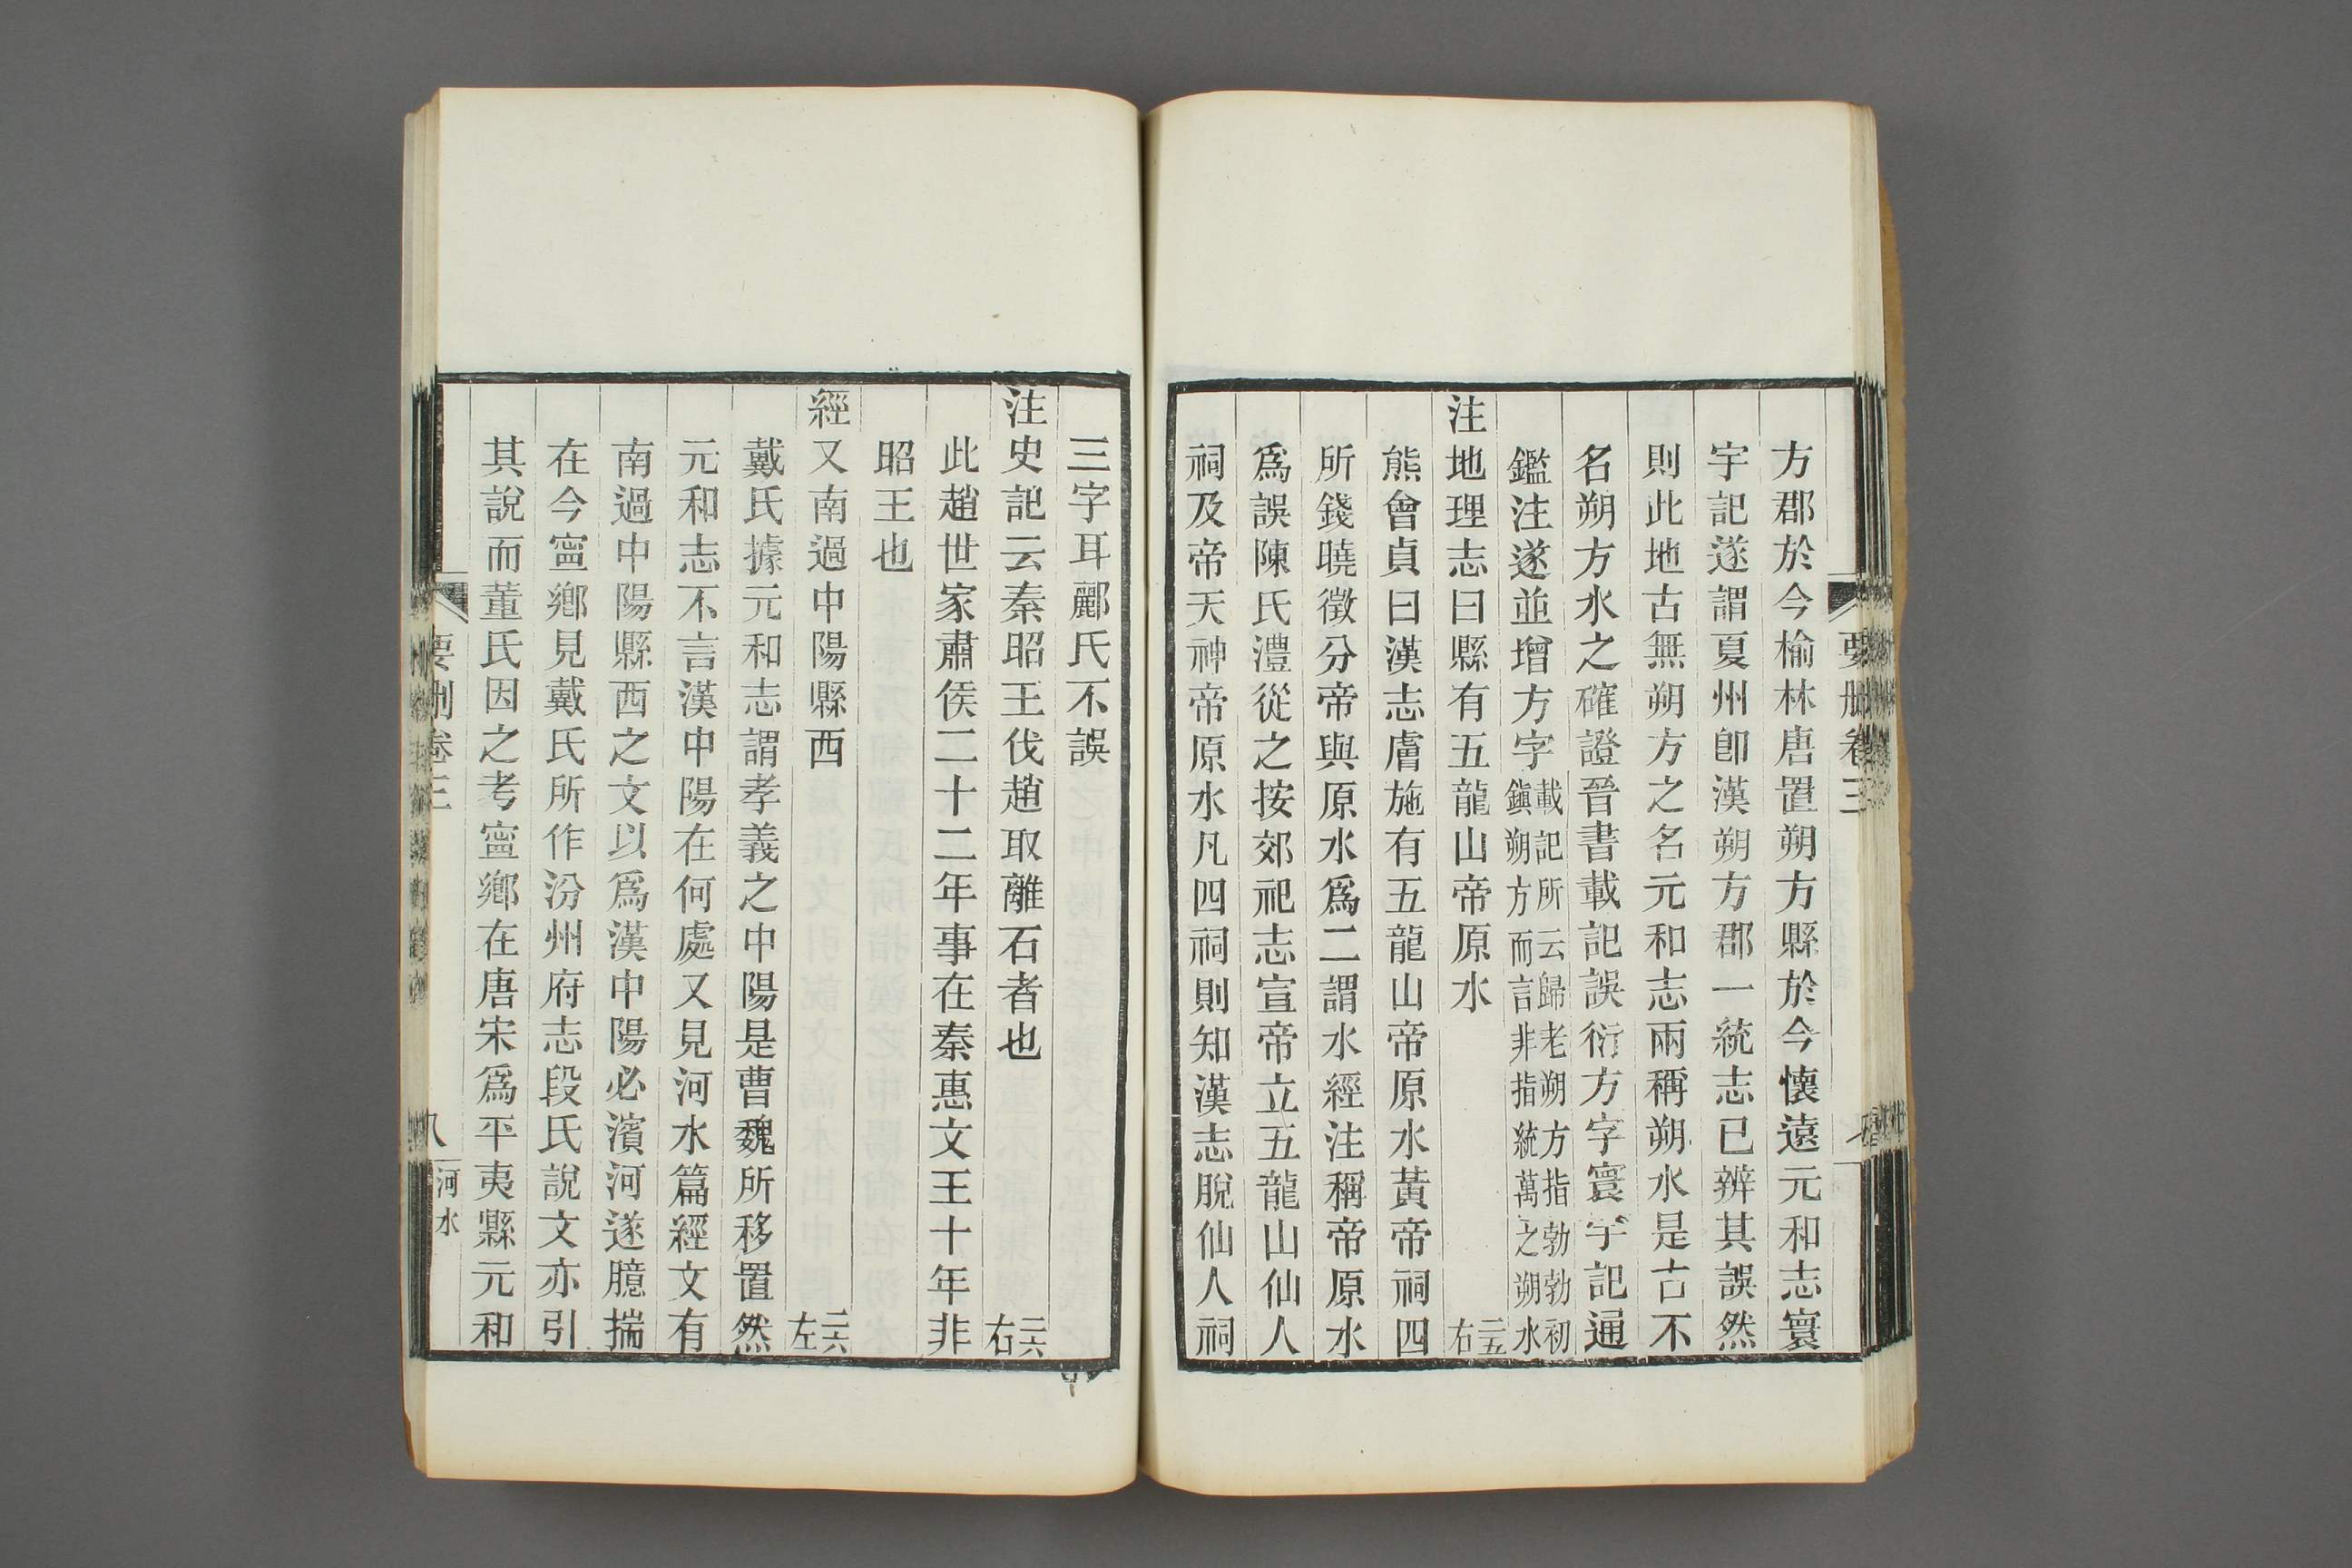 要刪卷三
方郡於今榆林唐置朔方縣於今懷遠元和志寰
宇記遂謂夏州卽漢朔方郡一統志已辨其誤然
則此地古無朔方之名元和志兩稱朔水是古不
名朔方水之確證晉書載記誤衍方字寰宇記通
鑑注遂並增方字載記所云歸老朔方指勃勃初鎭朔方而言非指統萬之朔水
注地理志曰縣有五龍山帝原水二五右
熊會貞曰漢志膚施有五龍山帝原水黃帝祠四
所錢曉徵分帝與原水爲二謂水經注稱帝原水
爲誤陳氏澧從之按郊祀志宣帝立五龍山仙人
祠及帝天神帝原水凡四祠則知漢志脫仙人祠
三字耳酈氏不誤
注史記云秦昭王伐趙取離石者也二六右
此趙世家肅侯二十二年事在秦惠文王十年非
昭王也
經又南過中陽縣西二六左
戴氏據元和志謂孝義之中陽是曹魏所移置然
元和志不言漢中陽在何處又見河水篇經文有
南過中陽縣西之文以爲漢中陽必濱河遂臆揣
在今寧鄉見戴氏所作汾州府志段氏說文亦引
其說而董氏因之考寧鄉在唐宋爲平夷縣元和
要刪卷三 八 河水